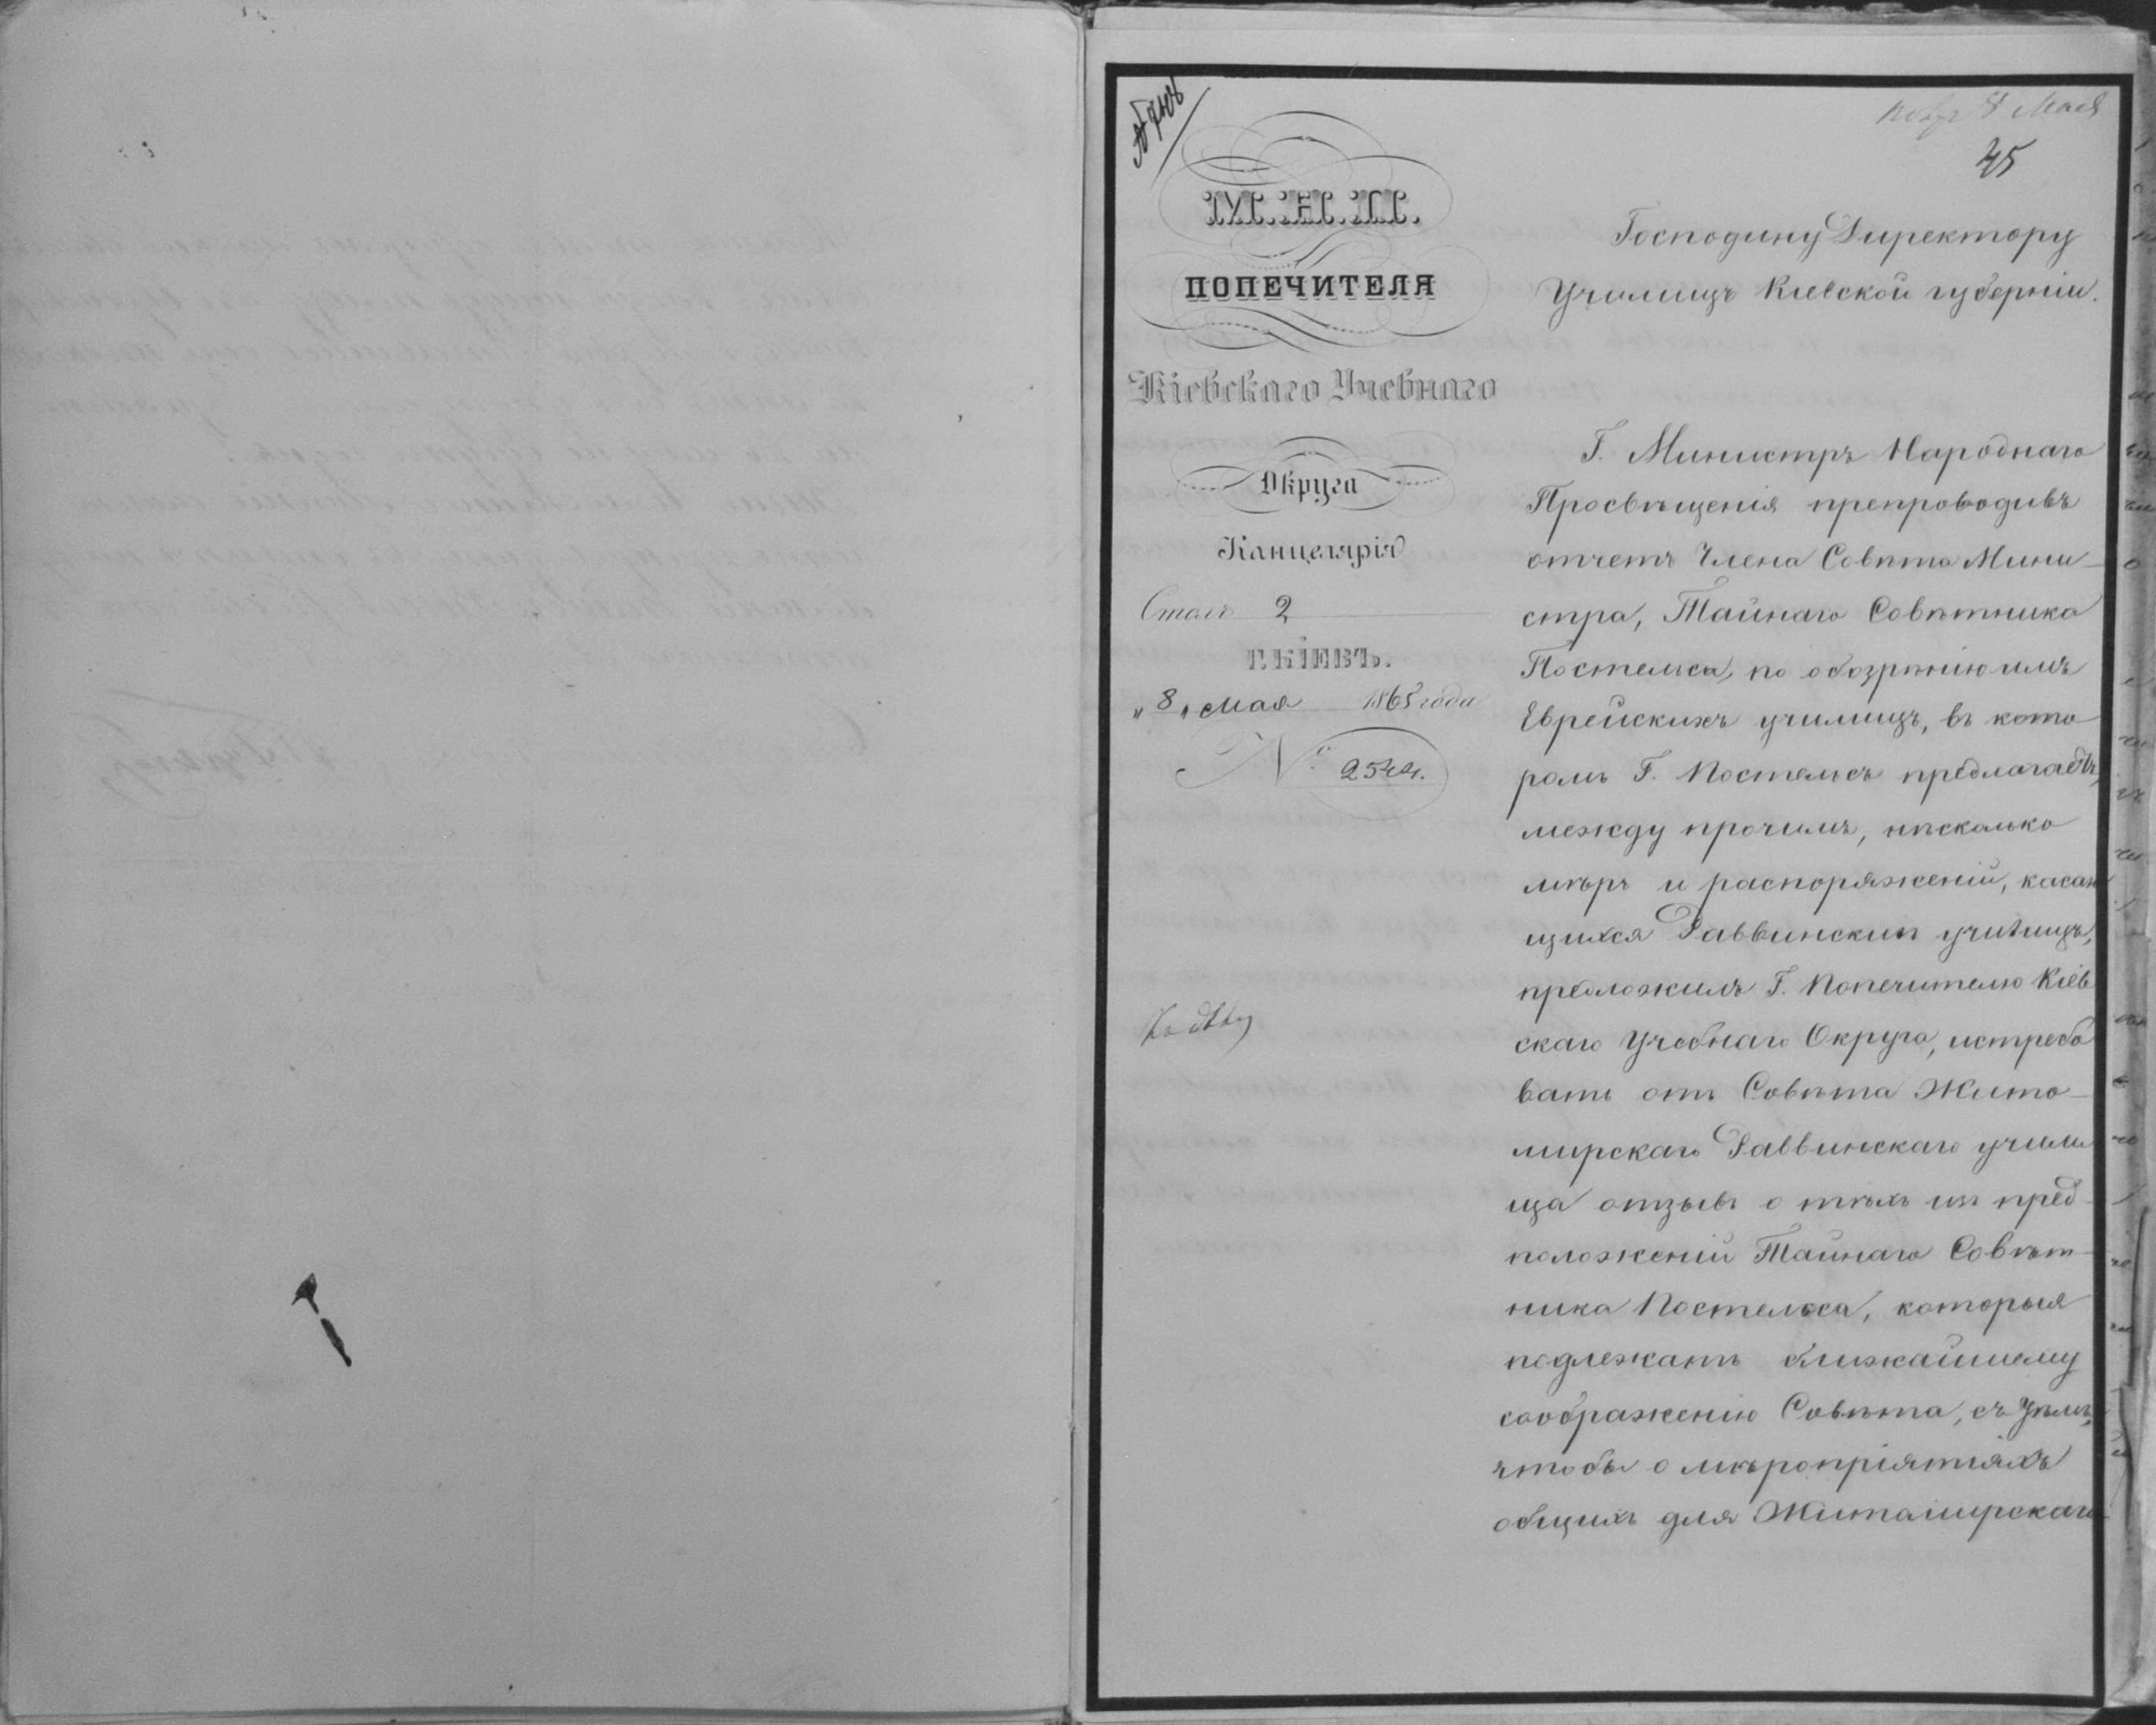 8 Мая
45
М.Н.П.
ПОПЕЧИТЕЛЯ
Кіевскаго Учебнаго
Округа
Канцелярія
Столъ 2
Г. КІЕВЪ.
„8„ Мая 1865 года
№ 2544.
Къ дѣлу
Господину Директору
Училищъ Кіевской губерніи.
Г. Министръ Народнаго
Просвѣщенія препроводивъ
отчетъ Члена Совѣта Мини-
стра, Тайнаго Совѣтника
Постельса, по обозрѣнію имъ
Еврейскихъ училищъ, въ кото
ромъ Г. Постельсъ предлагаетъ,
между прочимъ, нѣсколько
мѣръ и распоряженій, касаю
щихся Раввинскихъ училищъ,
предложилъ Г. Попечителю Кіев
скаго Учебнаго Округа, истребо
вать отъ Совѣта Жито-
мирскаго Раввинскаго учили
ща отзывъ о тѣхъ изъ пред-
положеній Тайнаго Совѣт-
ника Постельса, которыя
подлежатъ ближайшему
соображенію Совѣта, съ тѣмъ,
чтобы о мѣропріятіяхъ
общихъ для Житомирскаго